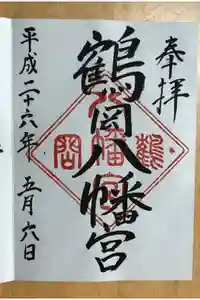 奉拝
鶴岡八幡宮
平成二十六年 五月六日
八幡宮
鶴
岡